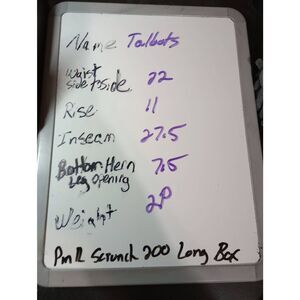 Name Talbots
Waist
side to side 22
Rise 11
Inseam 27.5
Bottom Hem 7.5
Leg Opening
Weight 2P
Pnk Scrunch 200 Long Box